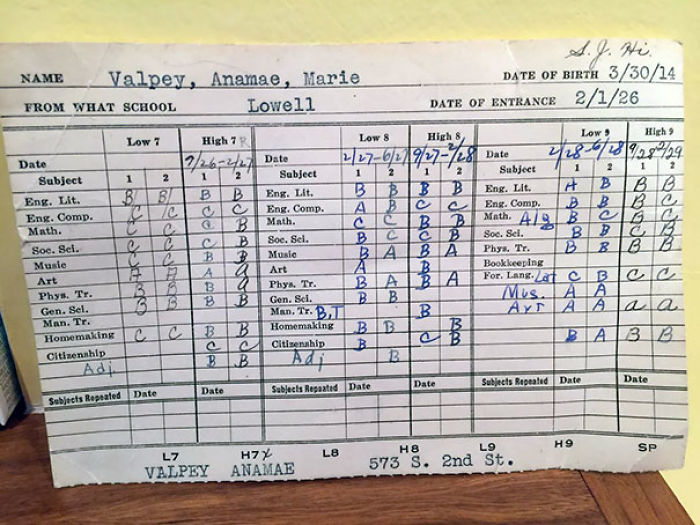 S. J. Hi.
NAME Valpey, Anamae, Marie DATE OF BIRTH 3/30/14
FROM WHAT SCHOOL Lowell DATE OF ENTRANCE 2/1/26
Low 7 High 7 Low 8 High 8 Low 9 High 9
Date 9/26-2/27 Date 2/27-6/27 9/27-2/28 Date 2/28-6/28 9/28 2/29
Subject 1 2 1 2 Subject 1 2 1 2 Subject 1 2 1 2
Eng. Lit. B B B B Eng. Lit. B B B B Eng. Lit. A B B B
Eng. Comp. C C C C Eng. Comp. A B C C Eng. Comp. B B B C
Math. C C C B Math. C C B B Math. Alg B C B C
Soc. Sci. C C C B Soc. Sci. B C C B Soc. Sci. B B C B
Music C C B B Music B A B A Phys. Tr. B B B B
Art A A A a Art A B Bookkeeping
Phys. Tr. B B B a Phys. Tr. B A B A For. Lang. Lat C B C C
Gen. Sci. B B B B Gen. Sci. B B Mus. A A
Man. Tr. Man. Tr. B,T B Art A A a a
Homemaking C C B B Homemaking B B B
Citizenship C C Citizenship B C B B A B B
Adj B B Adj B
Subjects Repeated Date Date Subjects Repeated Date Date Subjects Repeated Date Date
L7 H7 L8 H8 L9 H9 SP
VALPEY ANAMAE 573 S. 2nd St.